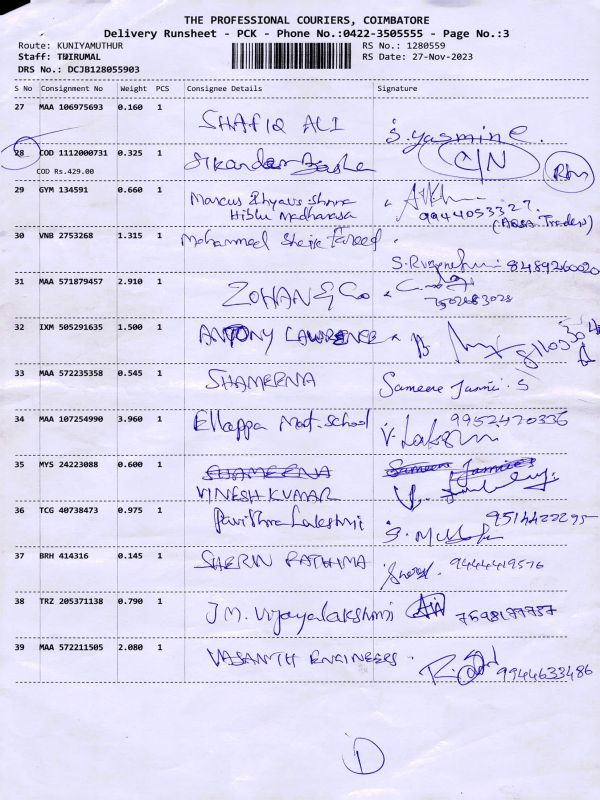 THE PROFESSIONAL COURIERS, COIMBATORE
Delivery Runsheet - PCK - Phone No.:0422-3505555 - Page No.:3
Route: KUNIYAMUTHUR RS No.: 1280559
Staff: THIRUMAL RS Date: 27-Nov-2023
DRS No.: DCJB128055903
S No Consignment No Weight PCS Consignee Details Signature
27 MAA 106975693 0.160 1 SHAFIQ ALI S. Yasmine.
28 COD 1112000731 0.325 1 Sikandar Basha C/N
COD Rs.429.00
29 GYM 134591 0.660 1 Marcus
Hiblu Madharasa 9944053327
30 VNB 2753268 1.315 1 Mohammed Sheik Fareed
8489260020
31 MAA 571879457 2.910 1 ZOHAN & Co
32 IXM 505291635 1.500 1 ANTONY LAWRENCE
33 MAA 572235358 0.545 1 SHAMEENA
34 MAA 107254990 3.960 1 Ellappa Mat. School 9952470336
35 MYS 24223088 0.600 1 SHAMEENA
VINESH KUMAR
36 TCG 40738473 0.975 1 Pavithra Lakshmi 9514422295
37 BRH 414316 0.145 1 SHERIN FATHIMA 9444419576
38 TRZ 205371138 0.790 1 J.M. Vijayalakshmi
39 MAA 572211505 2.080 1 VASANTH ENGINEERS 9944633486